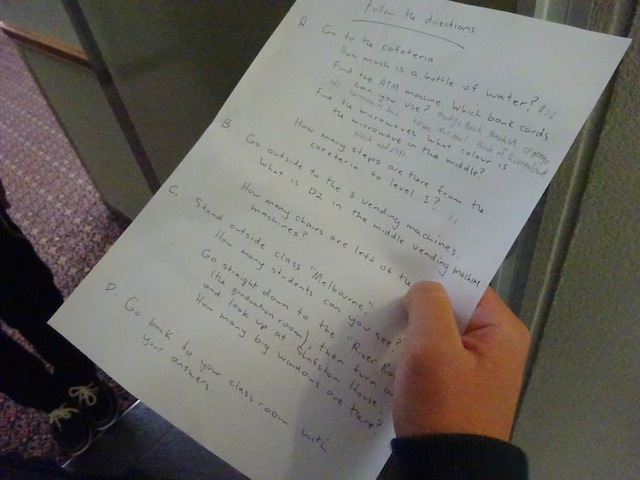 Follow the directions
A. Go to the cafeteria
How much is a bottle of water?
Find the ATM machine. Which bank cards
can you use?
Find the microwaves. What colour is
the microwave in the middle?
How many steps are there from the
cafeteria to level 1?
B. Go outside to the 3 vending machines.
What is D2 in the middle vending machine
How many chairs are left of the
machines?
C. Stand outside class "Melbourne".
How many students can you see?
Go straight down to the "River
(the graduation room), then turn
and look up at Shafston House.
How many big windows are there?
D. Go back to your classroom with
your answers.